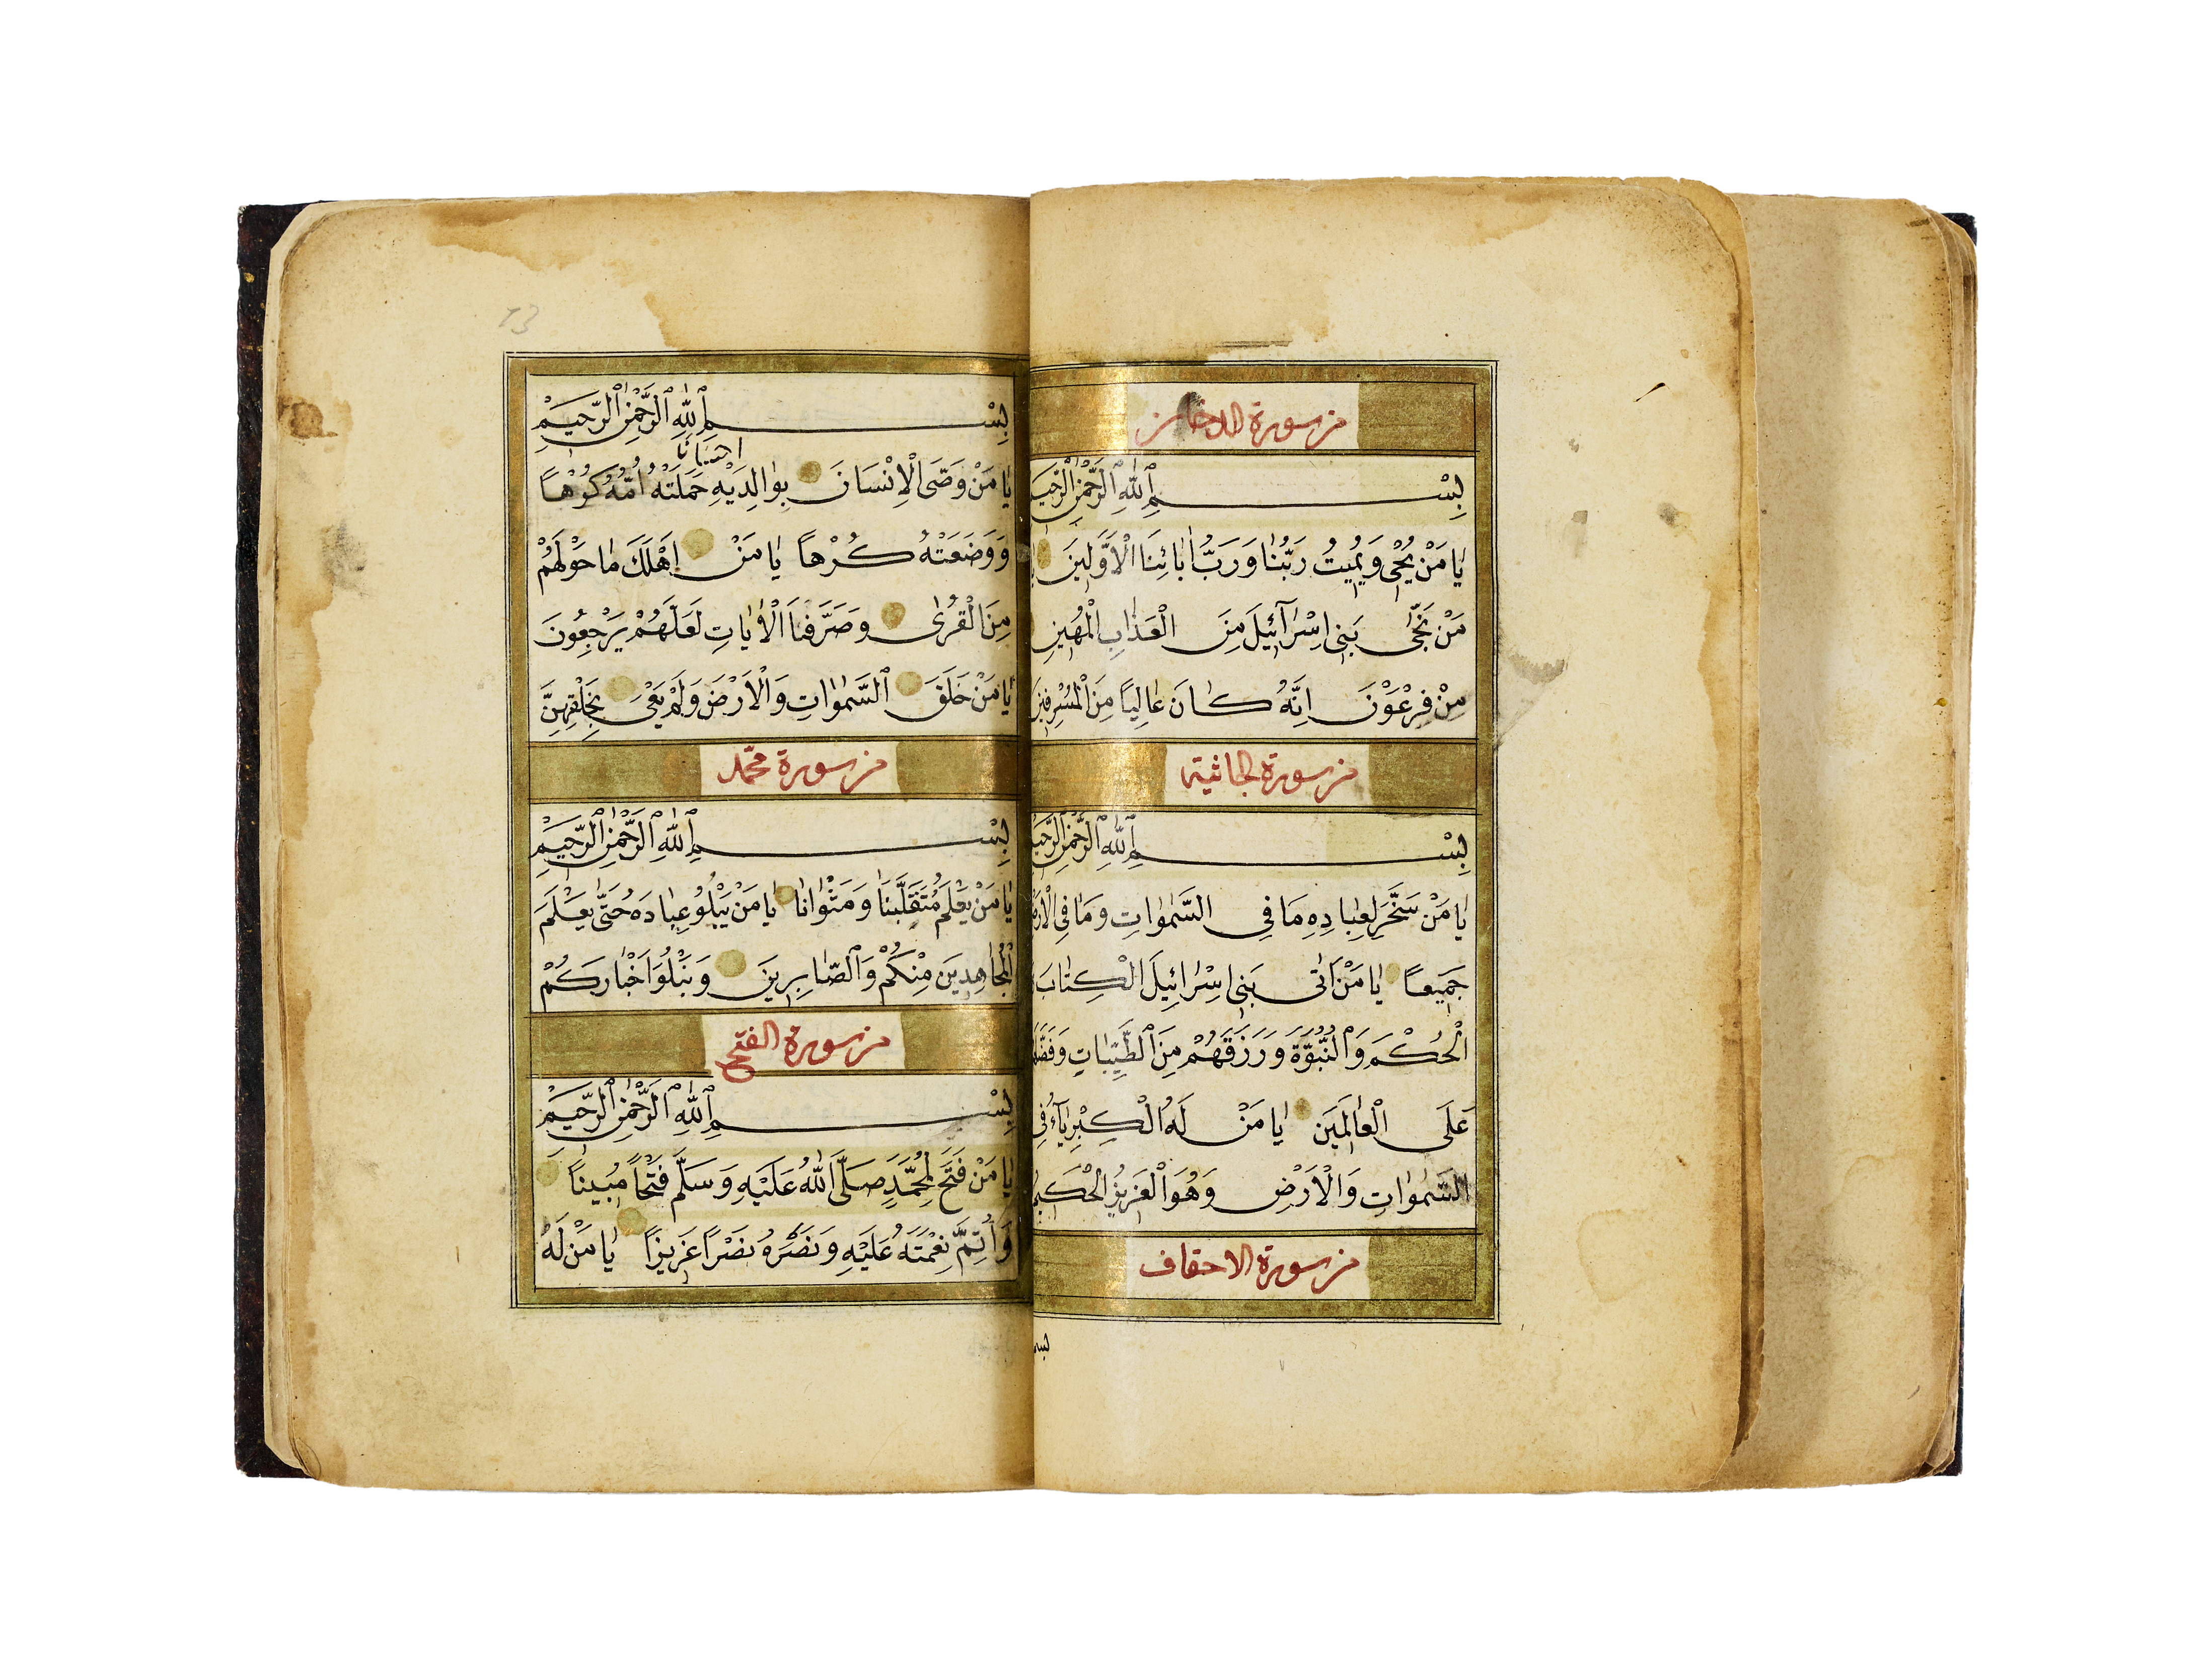 من سورة الدخان
بِسْمِ ٱللّٰهِ ٱلرَّحْمٰنِ ٱلرَّحِيمِ
يٰا مَنْ يُحْيِي وَيُمِيتُ رَبُّنٰا وَرَبُّ اٰبٰائِنَا الْاَوَّلِينَ
مَنْ نَجّٰى بَنِي اِسْرٰآئِيلَ مِنَ الْعَذٰابِ الْمُهِينِ
مِنْ فِرْعَوْنَ اِنَّهُ كٰانَ عٰالِياً مِنَ الْمُسْرِفِينَ
من سورة الجاثية
بِسْمِ ٱللّٰهِ ٱلرَّحْمٰنِ ٱلرَّحِيمِ
يٰا مَنْ سَخَّرَ لِعِبٰادِهِ مَا فِي السَّمٰوٰاتِ وَمٰا فِي الْاَرْضِ
جَمِيعاً يٰا مَنْ اٰتٰى بَنِي اِسْرٰائِيلَ الْكِتٰابَ
الْحُكْمَ وَالنُّبُوَّةَ وَرَزَقَهُمْ مِنَ ٱلطَّيِّبٰاتِ
عَلَى الْعٰالَمِينَ يٰا مَنْ لَهُ الْكِبْرِيٰآءُ فِي
السَّمٰوٰاتِ وَالْاَرْضِ وَهُوَ الْعَزِيزُ الْحَكِيمُ
من سورة الاحقاف
بِسْمِ ٱللّٰهِ ٱلرَّحْمٰنِ ٱلرَّحِيمِ
احساناً
يٰا مَنْ وَصَّى الْاِنْسَانَ بِوٰالِدَيْهِ حَمَلَتْهُ اُمُّهُ كُرْهاً
وَوَضَعَتْهُ كُرْهاً يٰا مَنْ اَهْلَكَ مٰا حَوْلَهُمْ
مِنَ الْقُرٰى وَصَرَّفْنَا الْاٰيٰاتِ لَعَلَّهُمْ يَرْجِعُونَ
يٰا مَنْ خَلَقَ ٱلسَّمٰوٰاتِ وَالْاَرْضَ وَلَمْ يَعْيَ بِخَلْقِهِنَّ
من سورة محمّد
بِسْمِ ٱللّٰهِ ٱلرَّحْمٰنِ ٱلرَّحِيمِ
يٰا مَنْ يَعْلَمُ مُتَقَلَّبَنٰا وَمَثْوٰانٰا يٰا مَنْ يَبْلُوُ عِبٰادَهُ حَتّٰى يَعْلَمَ
الْمُجٰاهِدِينَ مِنْكُمْ وَٱلصّٰابِرِينَ وَنَبْلُوَ اَخْبٰارَكُمْ
من سورة الفتح
بِسْمِ ٱللّٰهِ ٱلرَّحْمٰنِ ٱلرَّحِيمِ
يٰا مَنْ فَتَحَ لِمُحَمَّدٍ صَلَّى اللّٰهُ عَلَيْهِ وَسَلَّمَ فَتْحاً مُبِيناً
وَاَتَمَّ نِعْمَتَهُ عَلَيْهِ وَنَصَرَهُ نَصْراً عَزِيزاً يٰا مَنْ لَهُ